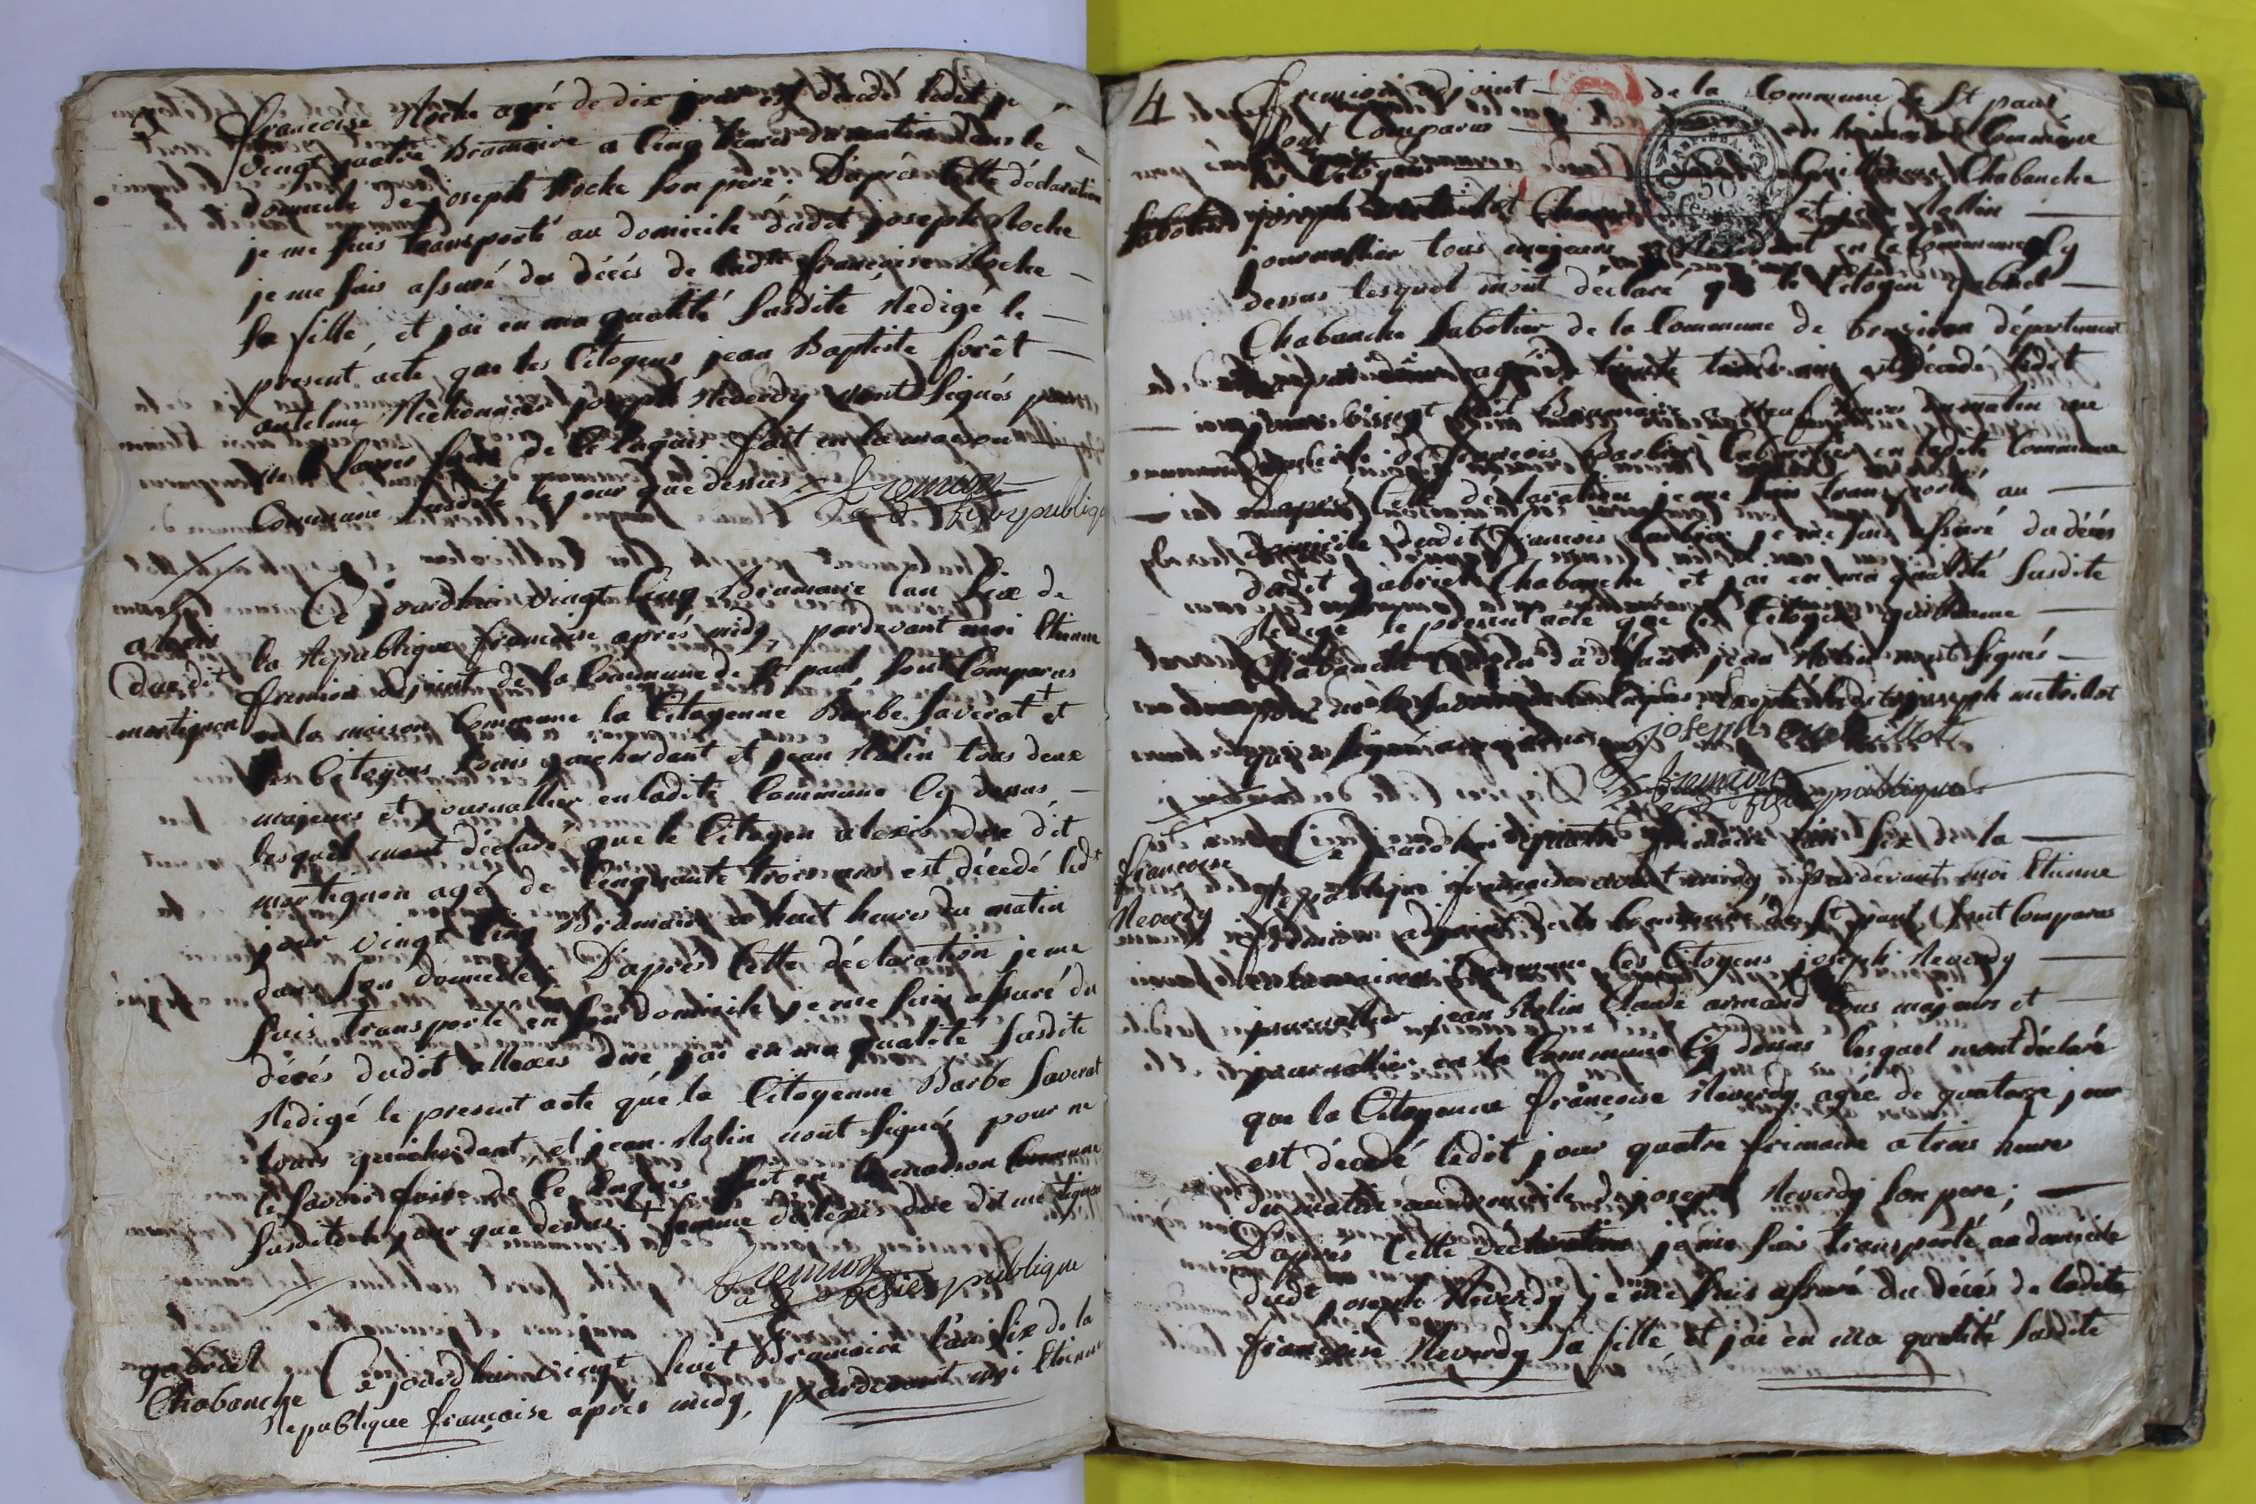 francoise Roche agé de dix jours est décédé ledit jour
vingt quatre Brumaire a Cinq heures du matin dans le
domicile de joseph Roche son pere. D'après Cette déclaration
je me suis transporté au domicile dudit joseph Roche
je me suis assuré du décés de ladte francoise Roche
sa fille, et jai en ma qualité Susdite Redigé le
present acte que les Citoyens jean Baptiste forêt
antelme joseph Reverdy nont Signés pour
ne le savoir faire de Ce Enquis fait en la maison
Commune Susdite le jour que dessus
Fremion
ag publique
alexis
due dit
martignon
Ce jourdhui vingt Cinq Brumaire lan Six de
la République francoise après midy, pardevant moi Etienne
fremion adjoint de la Commune de St paul, sont Comparus
en la maison Commune la Citoyenne Barbe Saverat + et
les Citoyens Louis quinchordant et jean Rolin tous deux
majeurs et journallier en ladite Commune Cy dessus
lesquel mont déclaré que le Citoyen alexis due dit
martignon agé de Cinquante trois ans est décedé ledt
jour vingt Cinq Brumaire a huit heures du matin
dans son domicile. D'après Cette déclaration je me
suis transporté en son domicile je me suis assuré du
décés dudit allexis due jai en ma qualité Susdite
Redigé le present acte que la Citoyenne Barbe Saverat
Louis quinchordant, et jean Rolin nont Signés pour ne
le Savoir faire de Ce Enquis fait en la maison Commune
Susdite le jour que dessus. + femme d'alexis due dit martignon
Fremion
ag publique
gabriel
Chabanche
Ce jourdhui vingt huit Brumaire l'an Six de la
Republique francoise après midy, pardevant moi Etienne
4
fremion adjoint de la Commune de St paul
Sont Comparus en la maison Commune
les Citoyens guillaume Chabanche
Sabotier joseph metrillot et jean Rollin
journallier tous majeurs en la Commune Cy
dessus lesquel mont déclaré que le Citoyen gabriel
Chabanche Sabotier de la Commune de département
agé de trente trois ans est décédé ledit
jour vingt huit Brumaire a neuf heures du matin au
domicile de francois Barbier Cabartier en ladite Commune
D'après Cette déclaration je me suis transporté au
domicile dudit francois Barbier je me suis assuré du décés
dudit gabriel Chabanche et jai en ma qualité Susdite
Redigé le present acte que les Citoyens guillaume
Chabanche jean Rolin nont Signés
pour ne le Savoir joseph metrillot
qui a Signé
joseph metrillot
fremion
ag publique
francoise
Reverdy
Ce jourdhui quatre frimaire l'an Six de la
République francaise avant midy, pardevant moi Etienne
fremion adjoint de la Commune de St paul, sont Comparus
en la maison Commune les Citoyens joseph Reverdy
journallier jean Rolin Claude armand tous majeurs et
journallier en la Commune Cy dessus lesquel mont déclaré
que la Citoyenne françoise Reverdy agée de quatorze jour
est décédé ledit jour quatre frimaire a trois heures
du matin au domicile de joseph Reverdy son pere;
D'après Cette déclaration je me suis transporté au domicile
dudt joseph Reverdy je me suis assuré du décés de ladite
françoise Reverdy Sa fille, et jai en ma qualité Susdite